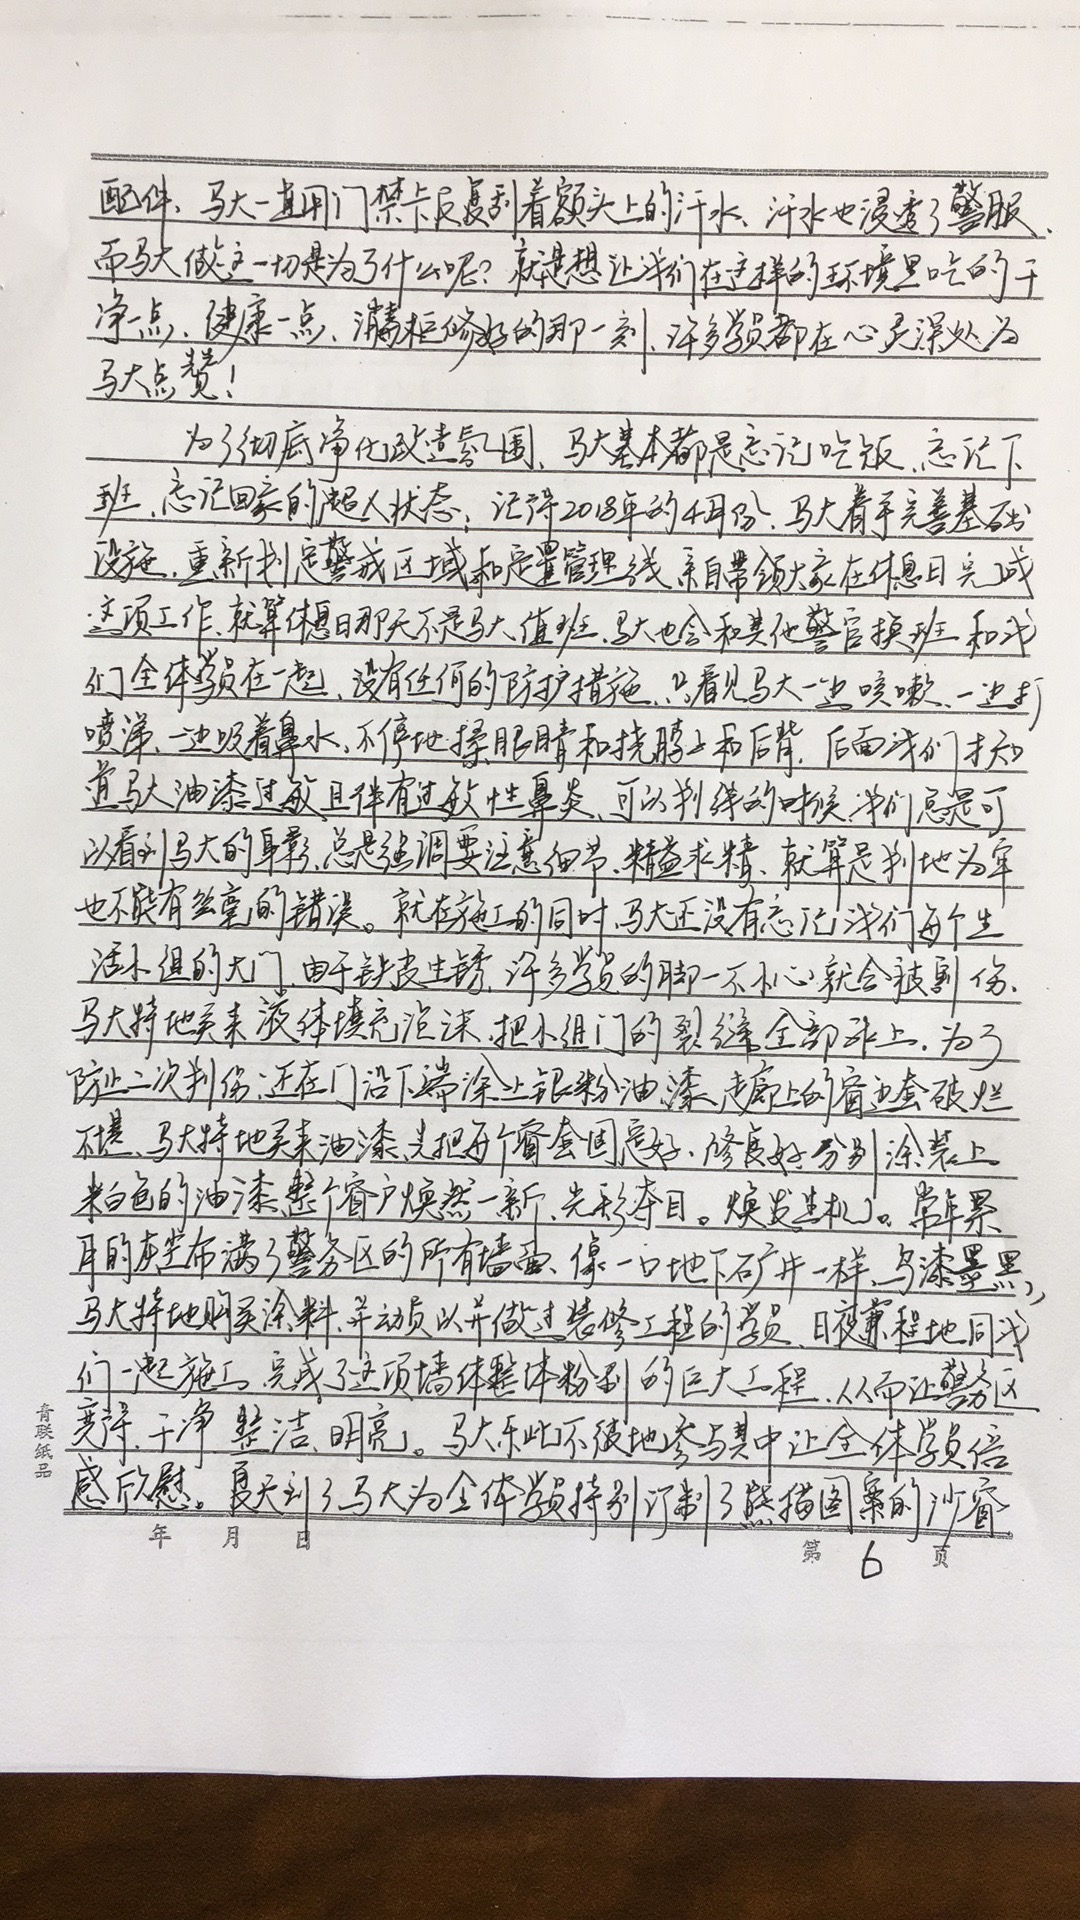 配件、马大一直用门禁卡反复刮着额头上的汗水、汗水也浸透了警服、
而马大做这一切是为了什么呢？就是想让我们在这样的环境里吃的干
净一点、健康一点、消毒柜修好的那一刻、许多学员都在心灵深处为
马大点赞！
为了彻底净化改造氛围、马大基本都是忘记吃饭、忘记下
班、忘记回家的超人状态；记得2018年的4月份、马大着手完善基础
设施、重新划定警戒区域和定置管理线、亲自带领大家在休息日完成
这项工作、就算休息日那天不是马大值班、马大也会和其他警官换班和我
们全体学员在一起、没有任何的防护措施、只看见马大一边咳嗽、一边打
喷涕、一边吸着鼻水、不停地揉眼睛和挠膀上和后背、后面我们才知
道马大油漆过敏且伴有过敏性鼻炎、可以划线的时候我们总是可
以看到马大的身影、总是强调要注意细节、精益求精、就算是划地为牢
也不能有丝毫的错误。就在施工的同时、马大还没有忘记我们每个生
活小组的大门、由于铁皮生锈、许多学员的脚一不小心就会被割伤、
马大特地买来液体填充泡沫、把小组门的裂缝全部补上、为了
防止二次划伤、还在门沿下端涂上银粉油漆、走廊上的窗边套破烂
不堪、马大特地买来油漆、先把每个窗套固定好、修良好分别涂装上
米白色的油漆、整个窗户焕然一新、光彩夺目。焕发生机。常年累
月的灰尘布满了警务区的所有墙面、像一口地下矿井一样、乌漆墨黑、
马大特地购买涂料、并动员以并做过装修工程的学员、日夜兼程地同我
们一起施工、完成了这项墙体整体粉刷的巨大工程、从而让警务区
变得、干净、整洁、明亮。马大乐此不疲地参与其中让全体学员倍
感欣慰。夏天到了马大为全体学员特别订制了熊猫图案的沙窗
青联纸品
年 月 日 第 6 页